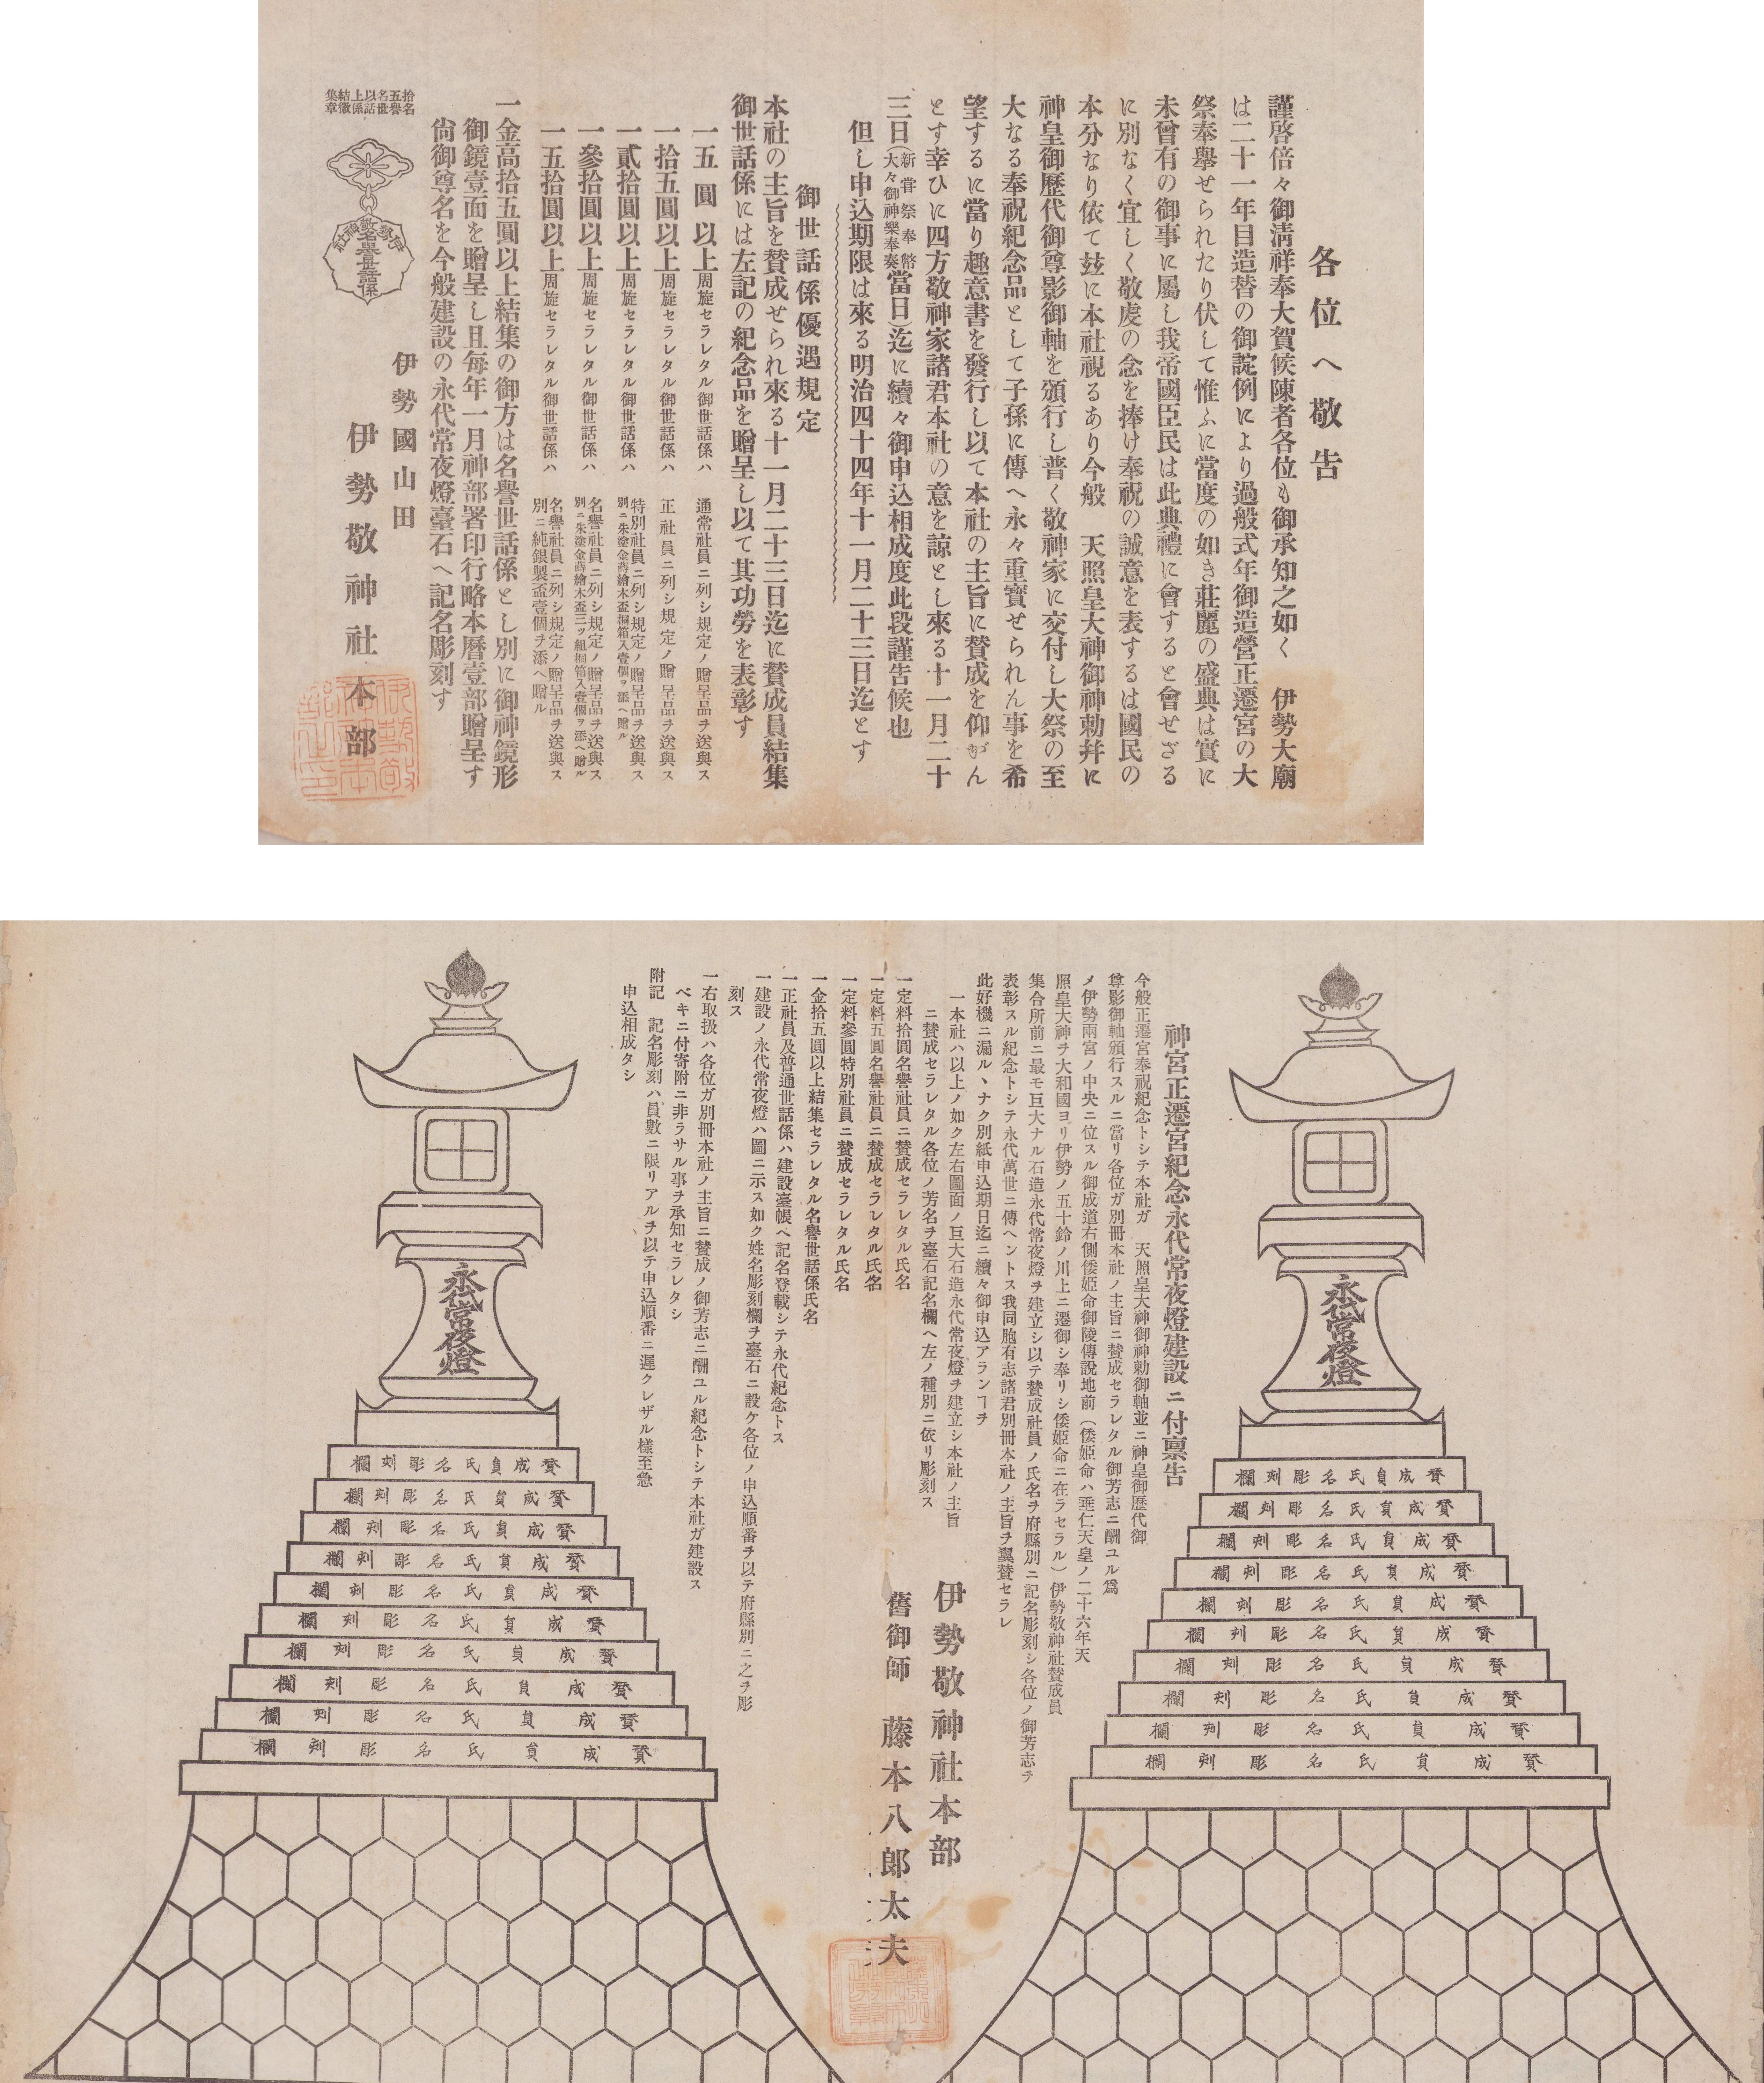 各位へ敬吿
謹啓倍々御淸祥奉大賀候陳者各位も御承知之如く　伊勢大廟
は二十一年目造替の御諚例により過般式年御造營正遷宮の大
祭奉擧せられたり伏して惟ふに當度の如き莊麗の盛典は實に
未曾有の御事に屬し我帝國臣民は此典禮に會すると會せざる
に別なく宜しく敬虔の念を捧け奉祝の誠意を表するは國民の
本分なり依て玆に本社視るあり今般　天照皇大神御神勅幷に
神皇御歷代御尊影御軸を頒行し普く敬神家に交付し大祭の至
大なる奉祝紀念品として子孫に傳へ永々重寳せられん事を希
望するに當り趣意書を發行し以て本社の主旨に賛成を仰がん
とす幸ひに四方敬神家諸君本社の意を諒とし來る十一月二十
三日(新甞祭奉幣大々御神樂奉奏當日)迄に續々御申込相成度此段謹吿候也
但し申込期限は來る明治四十四年十一月二十三日迄とす
御世話係優遇規定
本社の主旨を賛成せられ來る十一月二十三日迄に賛成員結集
御世話係には左記の紀念品を贈呈し以て其功勞を表彰す
一五圓以上周旋セラレタル御世話係ハ　通常社員ニ列シ規定ノ贈呈品ヲ送與ス
一拾五圓以上周旋セラレタル御世話係ハ　正社員ニ列シ規定ノ贈呈品ヲ送與ス
一貳拾圓以上周旋セラレタル御世話係ハ　特別社員ニ列シ規定ノ贈呈品ヲ送與ス
別ニ朱塗金蒔繪木盃桐箱入壹個ヲ添ヘ贈ル
一參拾圓以上周旋セラレタル御世話係ハ　名譽社員ニ列シ規定ノ贈呈品ヲ送與ス
別ニ朱塗金蒔繪木盃三ッ組桐箱入壹個ヲ添ヘ贈ル
一五拾圓以上周旋セラレタル御世話係ハ　名譽社員ニ列シ規定ノ贈呈品ヲ送與ス
別ニ純銀製盃壹個ヲ添ヘ贈ル
一金高拾五圓以上結集の御方は名譽世話係とし別に御神鏡形
御鏡壹面を贈呈し且每年一月神部署印行略本曆壹部贈呈す
尙御尊名を今般建設の永代常夜燈臺石へ記名彫刻す
伊勢國山田
伊勢敬神社本部
拾五名以上結集
名譽世話係徽章
伊勢敬神社
名譽世話係
神宮正遷宮紀念永代常夜燈建設ニ付禀吿
今般正遷宮奉祝紀念トシテ本社ガ　天照皇大神御神勅御軸並ニ神皇御歷代御
尊影御軸頒行スルニ當リ各位ガ別冊本社ノ主旨ニ賛成セラレタル御芳志ニ酬ユル爲
メ伊勢兩宮ノ中央ニ位スル御成道右側倭姬命御陵傳說地前（倭姬命ハ垂仁天皇ノ二十六年天
照皇大神ヲ大和國ヨリ伊勢ノ五十鈴ノ川上ニ遷御シ奉リシ倭姬命ニ在ラセラル）伊勢敬神社賛成員
集合所前ニ最モ巨大ナル石造永代常夜燈ヲ建立シ以テ賛成社員ノ氏名ヲ府縣別ニ記名彫刻シ各位ノ御芳志ヲ
表彰スル紀念トシテ永代萬世ニ傳ヘントス我同胞有志諸君別冊本社ノ主旨ヲ翼賛セラレ
此好機ニ漏ルヽナク別紙申込期日迄ニ續々御申込アランヿヲ
一本社ハ以上ノ如ク左右圖面ノ巨大石造永代常夜燈ヲ建立シ本社ノ主旨
ニ賛成セラレタル各位ノ芳名ヲ臺石記名欄ヘ左ノ種別ニ依リ彫刻ス
一定料拾圓名譽社員ニ賛成セラレタル氏名
一定料五圓名譽社員ニ賛成セラレタル氏名
一定料參圓特別社員ニ賛成セラレタル氏名
一金拾五圓以上結集セラレタル名譽世話係氏名
一正社員及普通世話係ハ建設臺帳ヘ記名登載シテ永代紀念トス
一建設ノ永代常夜燈ハ圖ニ示ス如ク姓名彫刻欄ヲ臺石ニ設ケ各位ノ申込順番ヲ以テ府縣別ニ之ヲ彫
刻ス
一右取扱ハ各位ガ別冊本社ノ主旨ニ賛成ノ御芳志ニ酬ユル紀念トシテ本社ガ建設ス
ベキニ付寄附ニ非ラサル事ヲ承知セラレタシ
附記　記名彫刻ハ員數ニ限リアルヲ以テ申込順番ニ遲クレザル樣至急
申込相成タシ
伊勢敬神社本部
舊御師　藤本八郞太夫
永代常夜燈
賛成員氏名彫刻欄
賛成員氏名彫刻欄
賛成員氏名彫刻欄
賛成員氏名彫刻欄
賛成員氏名彫刻欄
賛成員氏名彫刻欄
賛成員氏名彫刻欄
賛成員氏名彫刻欄
賛成員氏名彫刻欄
賛成員氏名彫刻欄
永代常夜燈
賛成員氏名彫刻欄
賛成員氏名彫刻欄
賛成員氏名彫刻欄
賛成員氏名彫刻欄
賛成員氏名彫刻欄
賛成員氏名彫刻欄
賛成員氏名彫刻欄
賛成員氏名彫刻欄
賛成員氏名彫刻欄
賛成員氏名彫刻欄